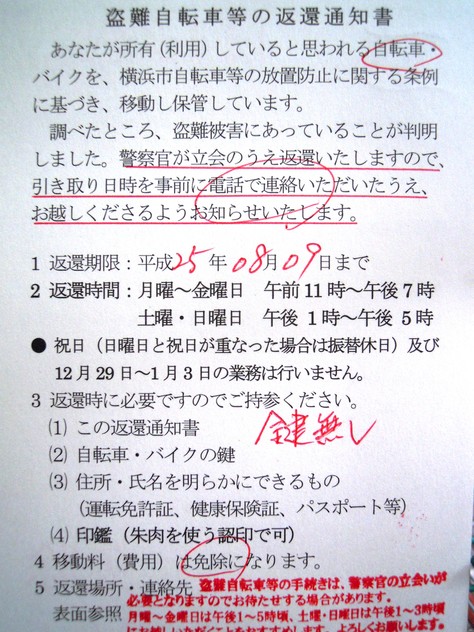 盗難自転車等の返還通知書
あなたが所有（利用）していると思われる自転車・
バイクを、横浜市自転車等の放置防止に関する条例
に基づき、移動し保管しています。
調べたところ、盗難被害にあっていることが判明
しました。警察官が立会のうえ返還いたしますので、
引き取り日時を事前に電話で連絡いただいたうえ、
お越しくださるようお知らせいたします。
1 返還期限：平成25年08月09日まで
2 返還時間：月曜～金曜日 午前11時～午後7時
土曜・日曜日 午後 1時～午後 5時
● 祝日（日曜日と祝日が重なった場合は振替休日）及び
12月29日～1月3日の業務は行いません。
3 返還時に必要ですのでご持参ください。
(1) この返還通知書
鍵無し
(2) 自転車・バイクの鍵
(3) 住所・氏名を明らかにできるもの
（運転免許証、健康保険証、パスポート等）
(4) 印鑑（朱肉を使う認印で可）
4 移動料（費用）は免除になります。
5 返還場所・連絡先 盗難自転車等の手続きは、警察官の立会いが
表面参照 必要となりますのでお待たせする場合があります。
月曜～金曜日は午後1～5時頃、土曜・日曜日は午後1～3時頃
にお越しいただくことをおすすめします。よろしくお願いします。